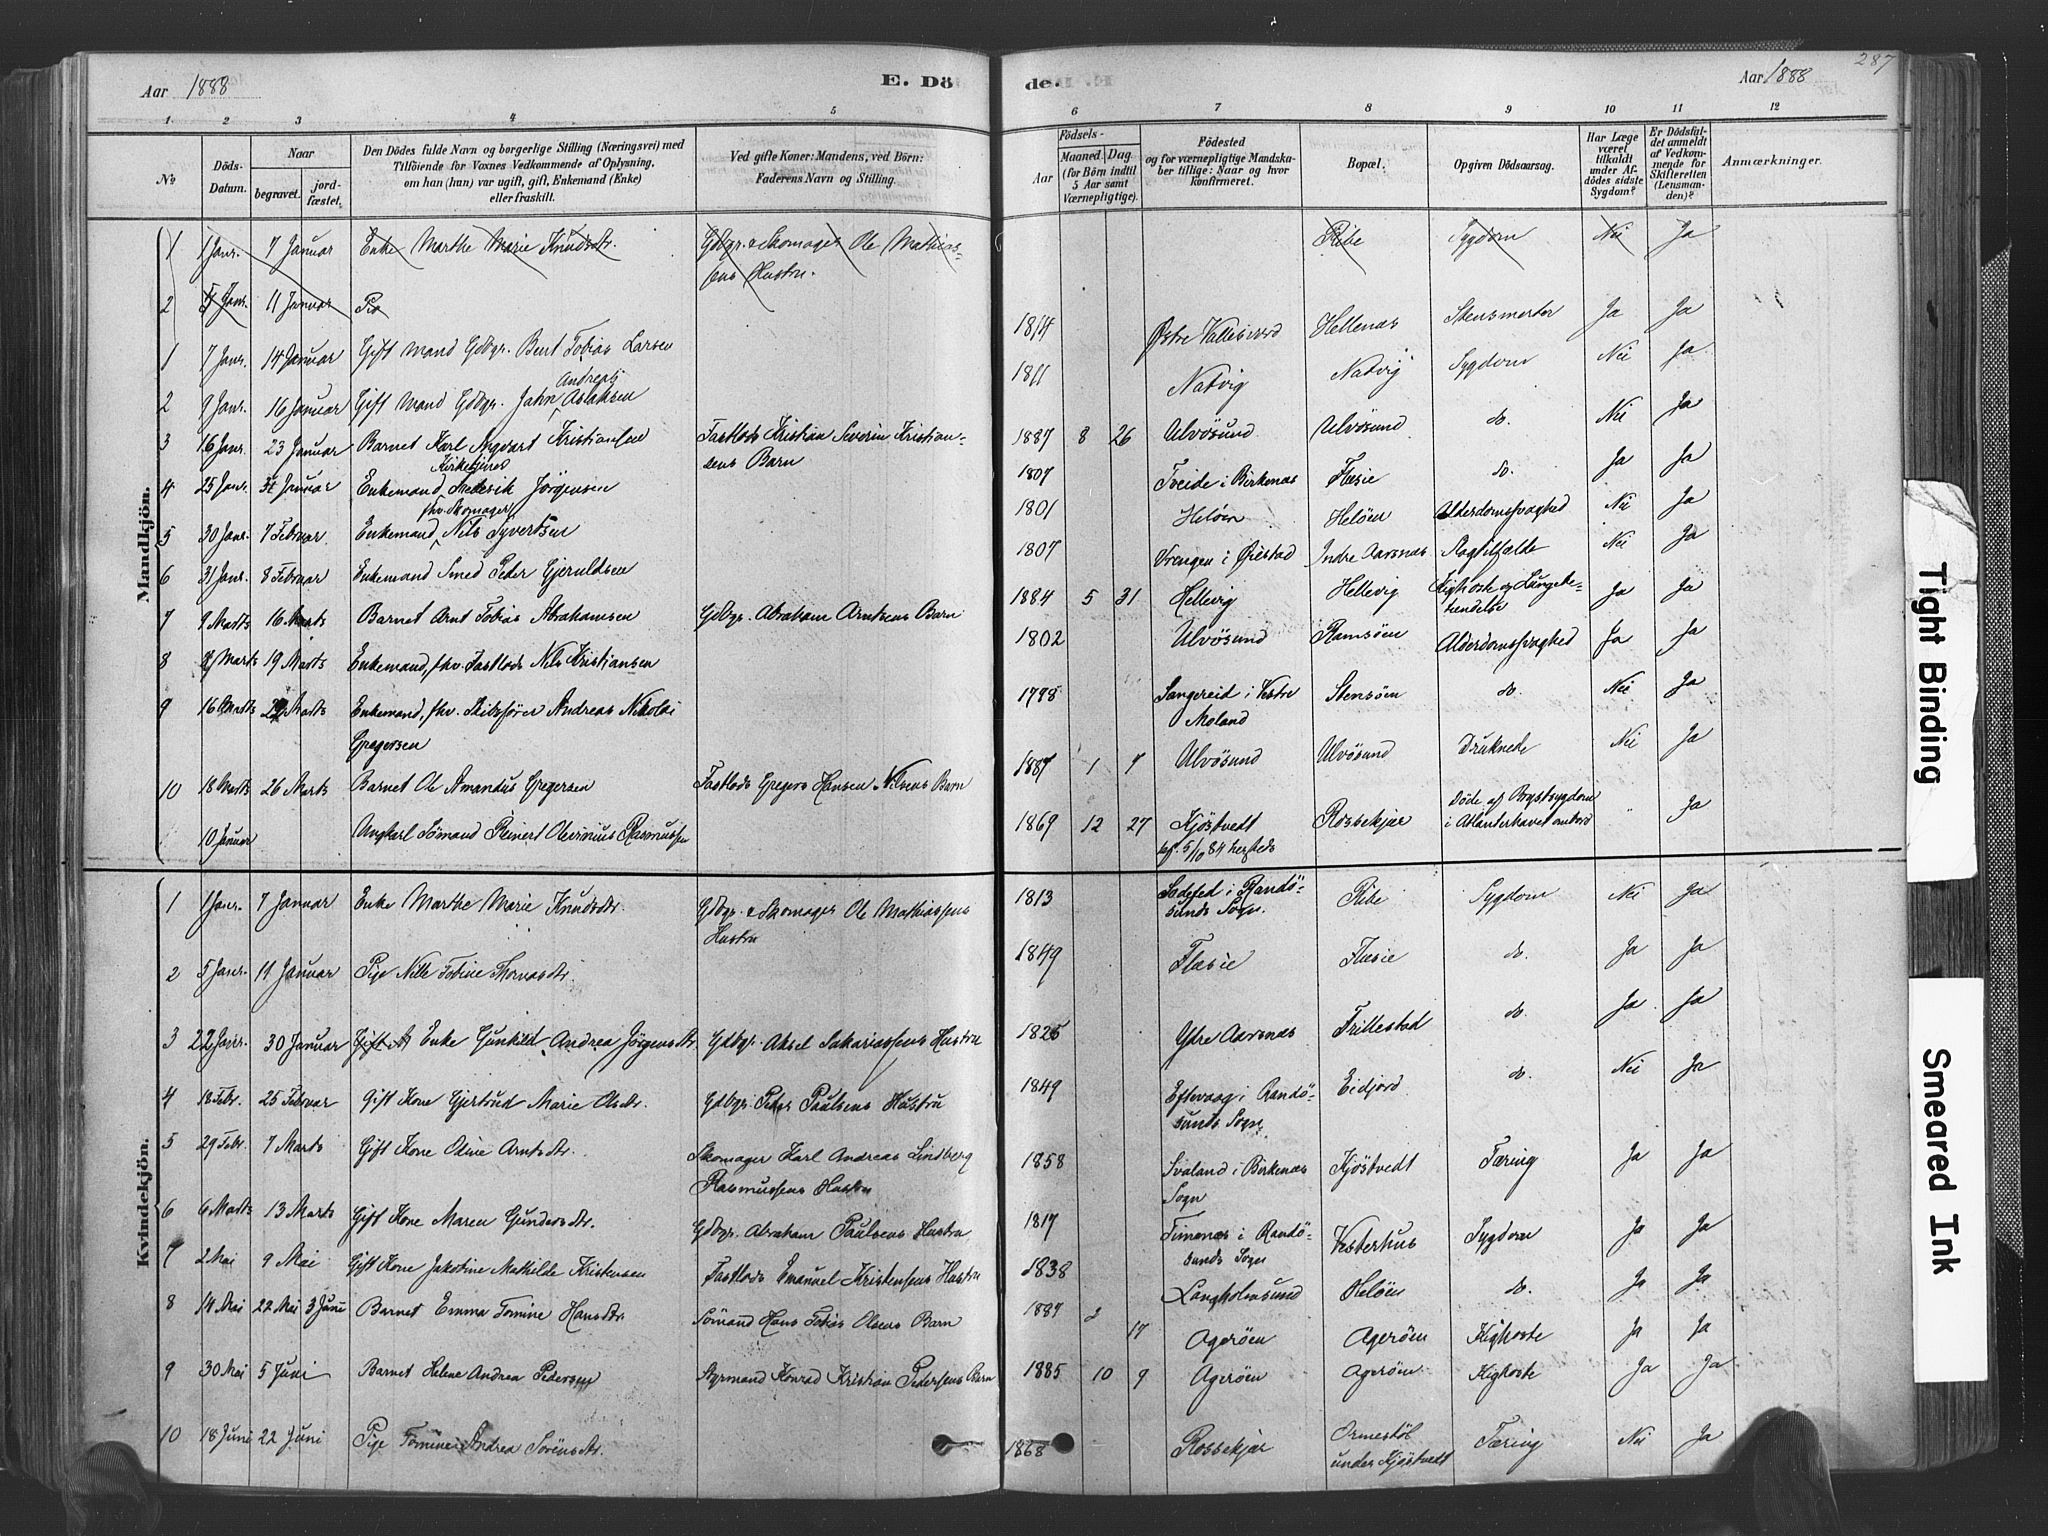 287
Aar 1888 E. Dö de. Aar 1888
1 2 3 4 5 6 7 8 9 10 11 12
No Döds-Datum. Naar begravet. jordfæstet. Den Dödes fulde Navn og borgerlige Stilling (Næringsvei) med Tilföiende for Voxnes Vedkommende af Oplysning, om han (hun) var ugift, gift, Enkemand (Enke) eller fraskilt. Ved gifte Koner: Mandens, ved Börn: Faderens Navn og Stilling. Födsels- Aar Maaned. Dag. (for Börn indtil 5 Aar samt Værnepligtige). Födested og for værnepligtige Mandskaber tillige: Naar og hvor konfirmeret. Bopæl. Opgiven Dödsaarsag. Har Læge været tilkaldt under Afdödes sidste Sygdom? Er Dödsfuldet anmeldt af Vedkommende for Skifteretten (Lensmanden)? Anmærkninger.
Mandkjön.
1 1 Janr. 7 Januar Enke Marthe Marie Knudsdtr. Gdbgr. & Skomager Ole Mathias- Ribe Sygdom Nei Ja
sens Hustru.
2 5 Janr. 11 Januar Pi
1 7 Janr. 14 Januar Gift Mand Gdbgr. Bent Tobias Larsen 1814 Østre Vallesværd Hellenæs Stensmerter Ja Ja
2 9 Janr. 16 Januar Gift Mand Gdbgr. Jahn Andreas Aslaksen 1811 Natvig Natvig Sygdom Nei Ja
3 16 Janr. 23 Januar Barnet Karl Ingvart Kristiansen Fastlods Kristian Severin Kristian- 1887 8 26 Ulvösund Ulvösund do. Nei Ja
sens Barn
4 25 Janr. 31 Januar Enkemand Kirketjener Frederik Jörgensen 1807 Tveide i Birkenæs Flæsie do. Ja Ja
5 30 Janr. 7 Februar Enkemand fhv. Skomager Nils Syvertsen 1801 Helöen Helöen Alderdomssvaghed Nei Ja
6 31 Janr. 8 Februar Enkemand Smed Peder Gjeruldsen 1807 Vrengen i Øiestad Indre Aarsnæs Slagtilfælde Nei Ja
7 9 Marts 16 Marts Barnet Arnt Tobias Abrahamsen Gdbgr. Abraham Arntsens Barn 1884 5 31 Hellevig Hellevig Kighoste og Lungebe- Ja Ja
tændelse
8 Marts 19 Marts Enkemand, fhv. Fastlods Nils Kristiansen 1802 Ulvösund Ramsöen Alderdomssvaghed Ja Ja
9 16 Marts Marts Enkemand, fhv. Skibsfører Andreas Nikolai 1798 Sangereid i Vestre Stensöen do. Nei Ja
Gregersen Moland
10 18 Marts 26 Marts Barnet Ole Amandus Gregersen Fastlods Gregers Hansen Nilsens Barn 1887 1 7 Ulvösund Ulvösund Druknede Nei Ja
10 Januar Ungkarl Sömand Reinert Olevinius Rasmussen 1869 12 27 Kjöstvedt Rossekjær Döde af Brystsygdom " Ja
kf. 5/10 84 hersteds i Atlanterhavet ombord
Kvindekjön.
1 1 Janr. 7 Januar Enke Marthe Marie Knudsdtr. Gdbgr. & Skomager Ole Mathiassens 1813 i Randö- Ribe Sygdom Nei Ja
Hustru sunds Sogn.
2 5 Janr. 11 Januar Pige Nille Tobine Thomasdtr. 1849 Flæsie Flæsie do. Ja Ja
3 22 Janr. 30 Januar Enke Gunhild Andrea Jörgensdtr. Gdbgr. Aksel Sakariassens Hustru 1825 Ytre Aarsnæs Trillestad do. Ja Ja
4 18 Febr. 25 Februar Gift Kone Gjertrud Marie Olsdtr. Gdbgr. Peder Paulsens Hustru 1849 Eftevaag i Randö- Eidjord do. Nei Ja
sunds Sogn.
5 29 Febr. 7 Marts Gift Kone Oline Arntsdtr. Skomager Karl Andreas Lindberg 1858 Svaland i Birkenæs Kjöstvedt Tæring Ja Ja
Rasmussens Hustru Sogn
6 6 Marts 13 Marts Gift Kone Maren Gundersdtr. Gdbgr. Abraham Paulsens Hustru 1817 Timenæs i Randö- Vesterhus Sygdom Ja Ja
sunds Sogn
7 2 Mai 9 Mai Gift Kone Jakobine Mathilde Kristensen Fastlods Emanuel Kristensens Hustru 1838 Langholmsund Helöen do. Ja Ja
8 14 Mai 22 Mai 3 Juni Barnet Emma Tomine Hansdtr. Sömand Hans Tobias Olsens Barn 1887 2 17 Ageröen Ageröen Kighoste Ja Ja
9 30 Mai 5 Juni Barnet Helene Andrea Pedersen Styrmand Konrad Kristian Pedersens Barn 1885 10 9 Ageröen Ageröen Kighoste Ja Ja
10 18 Juni 22 Juni Pige Tomine Andrea Sörensdtr. 1868 Rossekjær Ormestöl Tæring Nei Ja
under Kjöstvedt
Tight Binding
Smeared Ink